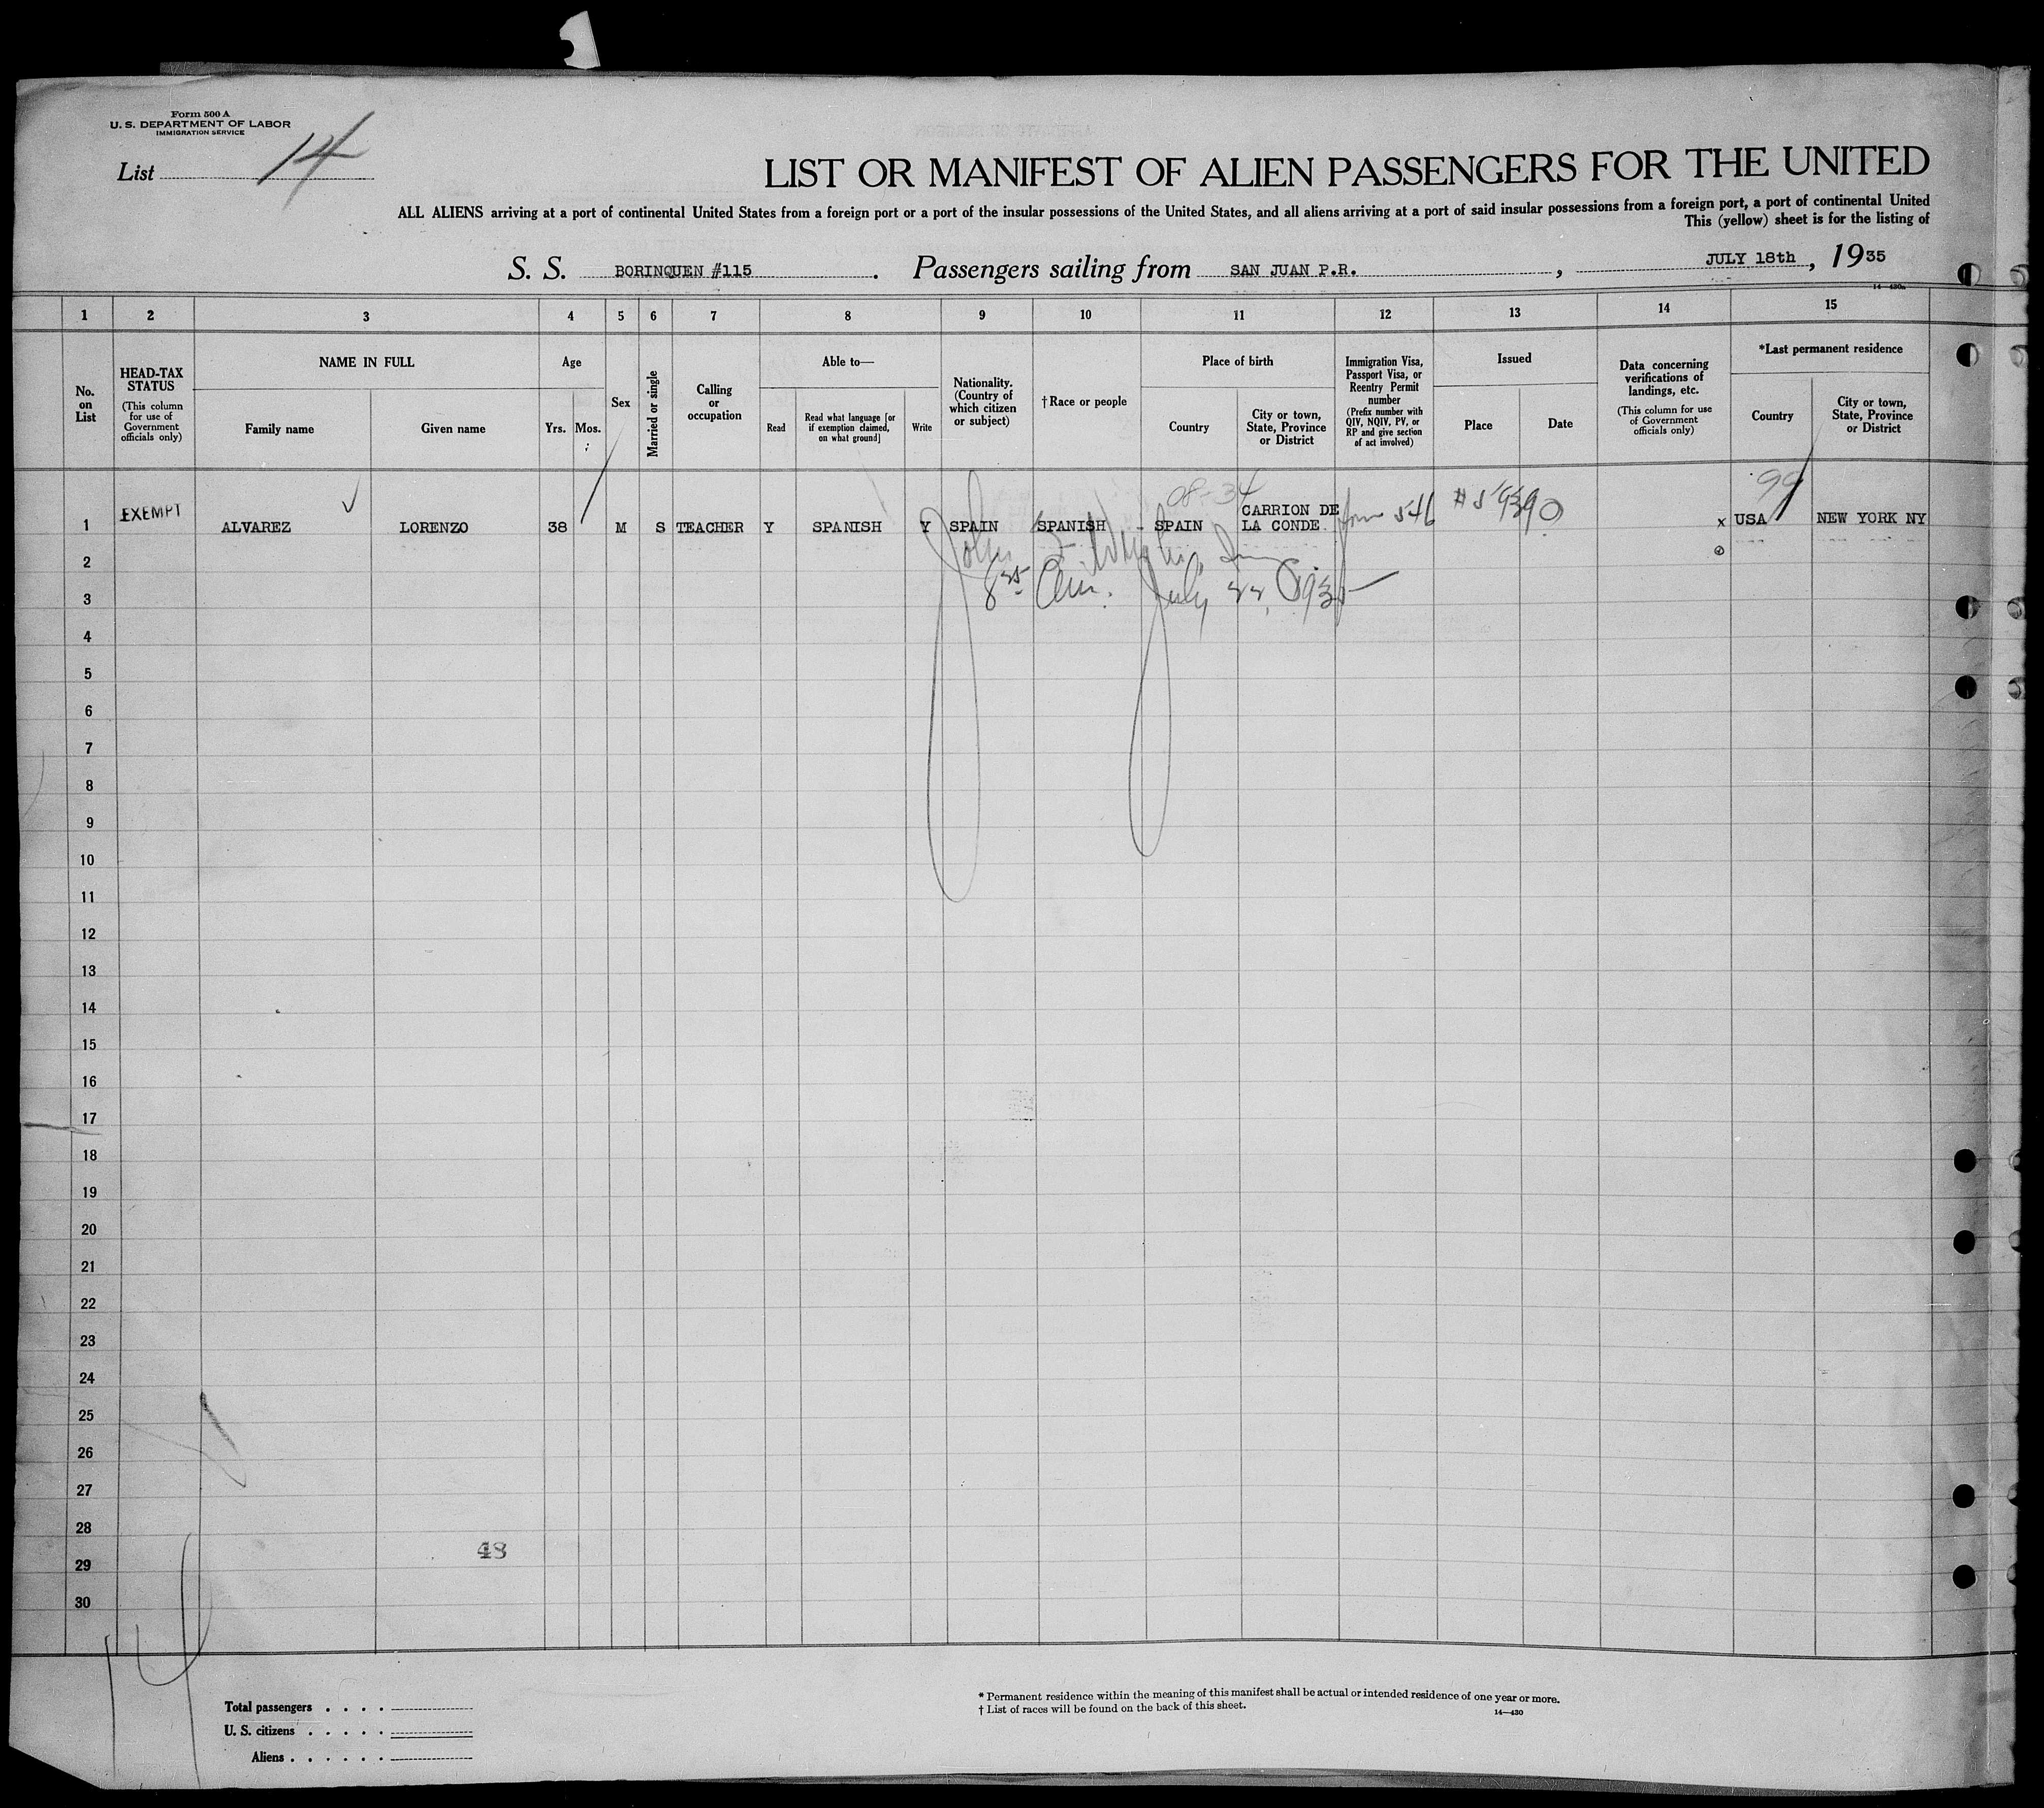 Form 500 A
U. S. DEPARTMENT OF LABOR
IMMIGRATION SERVICE
List 14
LIST OR MANIFEST OF ALIEN PASSENGERS FOR THE UNITED
ALL ALIENS arriving at a port of continental United States from a foreign port or a port of the insular possessions of the United States, and all aliens arriving at a port of said insular possessions from a foreign port, a port of continental United
This (yellow) sheet is for the listing of
S. S. BORINQUEN #115 . Passengers sailing from SAN JUAN P.R. , JULY 18th , 1935
14—430a
1 2 3 4 5 6 7 8 9 10 11 12 13 14 15
No. on List
HEAD-TAX STATUS
(This column for use of Government officials only)
NAME IN FULL
Family name
Given name
Age
Yrs.
Mos.
Sex
Married or single
Calling or occupation
Able to—
Read
Read what language [or if exemption claimed, on what ground]
Write
Nationality. (Country of which citizen or subject)
†Race or people
Place of birth
Country
City or town, State, Province or District
Immigration Visa, Passport Visa, or Reentry Permit number
(Prefix number with QIV, NQIV, PV, or RP and give section of act involved)
Issued
Place
Date
Data concerning verifications of landings, etc.
(This column for use of Government officials only)
*Last permanent residence
Country
City or town, State, Province or District
08-34
99
1 EXEMPT ALVAREZ LORENZO 38 M S TEACHER Y SPANISH Y SPAIN SPANISH - SPAIN CARRION DE LA CONDE. form 546 x USA NEW YORK NY
2
John
3
8 25 Am. July 22, 1935
4
5
6
7
8
9
10
11
12
13
14
15
16
17
18
19
20
21
22
23
24
25
26
27
28
48
29
30
14
Total passengers . . . .
U. S. citizens . . . . .
Aliens . . . . . .
* Permanent residence within the meaning of this manifest shall be actual or intended residence of one year or more.
† List of races will be found on the back of this sheet.
14—430